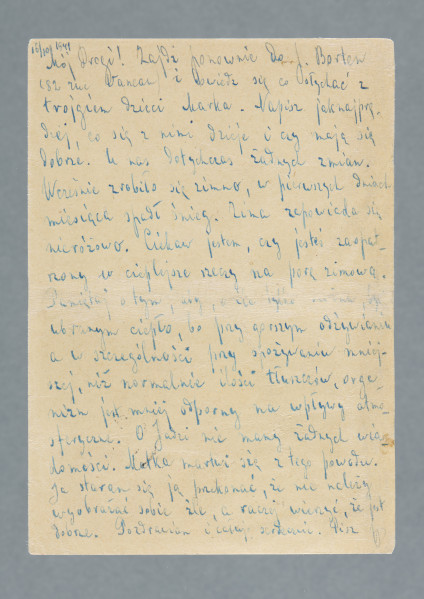 15/10/1941
Mój Drogi! Zajdź ponownie do J. Borten
i dowiedz się co słychać z
trojgiem dzieci Marka. Napisz jaknajprę-
dzej, co się z nimi dzieje i czy mają się
dobrze. U nas dotychczas żadnych zmian.
Wcześnie zrobiło się zimno, w pierwszych dniach
miesiąca spadł śnieg. Zima zapowiada się
nieróżowo. Ciekaw jestem, czy jesteś zaopat-
rzony w cieplejsze rzeczy na porę zimową.
Pamiętaj o tym, aby
ubranym ciepło, bo przy gorszym odżywianiu
a w szczególności przy spożywaniu mniej-
szej, niż normalnie ilości tłuszczów, orga-
nizm jest mniej odporny na wpływy atmo-
sferyczne. O Jadzi nie mamy żadnych wia-
domości. Matka martwi się z tego powodu.
Ja staram się ją przekonać, że nie należy
wyobrażać sobie źle, a raczej wierzyć, że jest
dobrze. Pozdrawiam i całuję serdecznie. Pisz